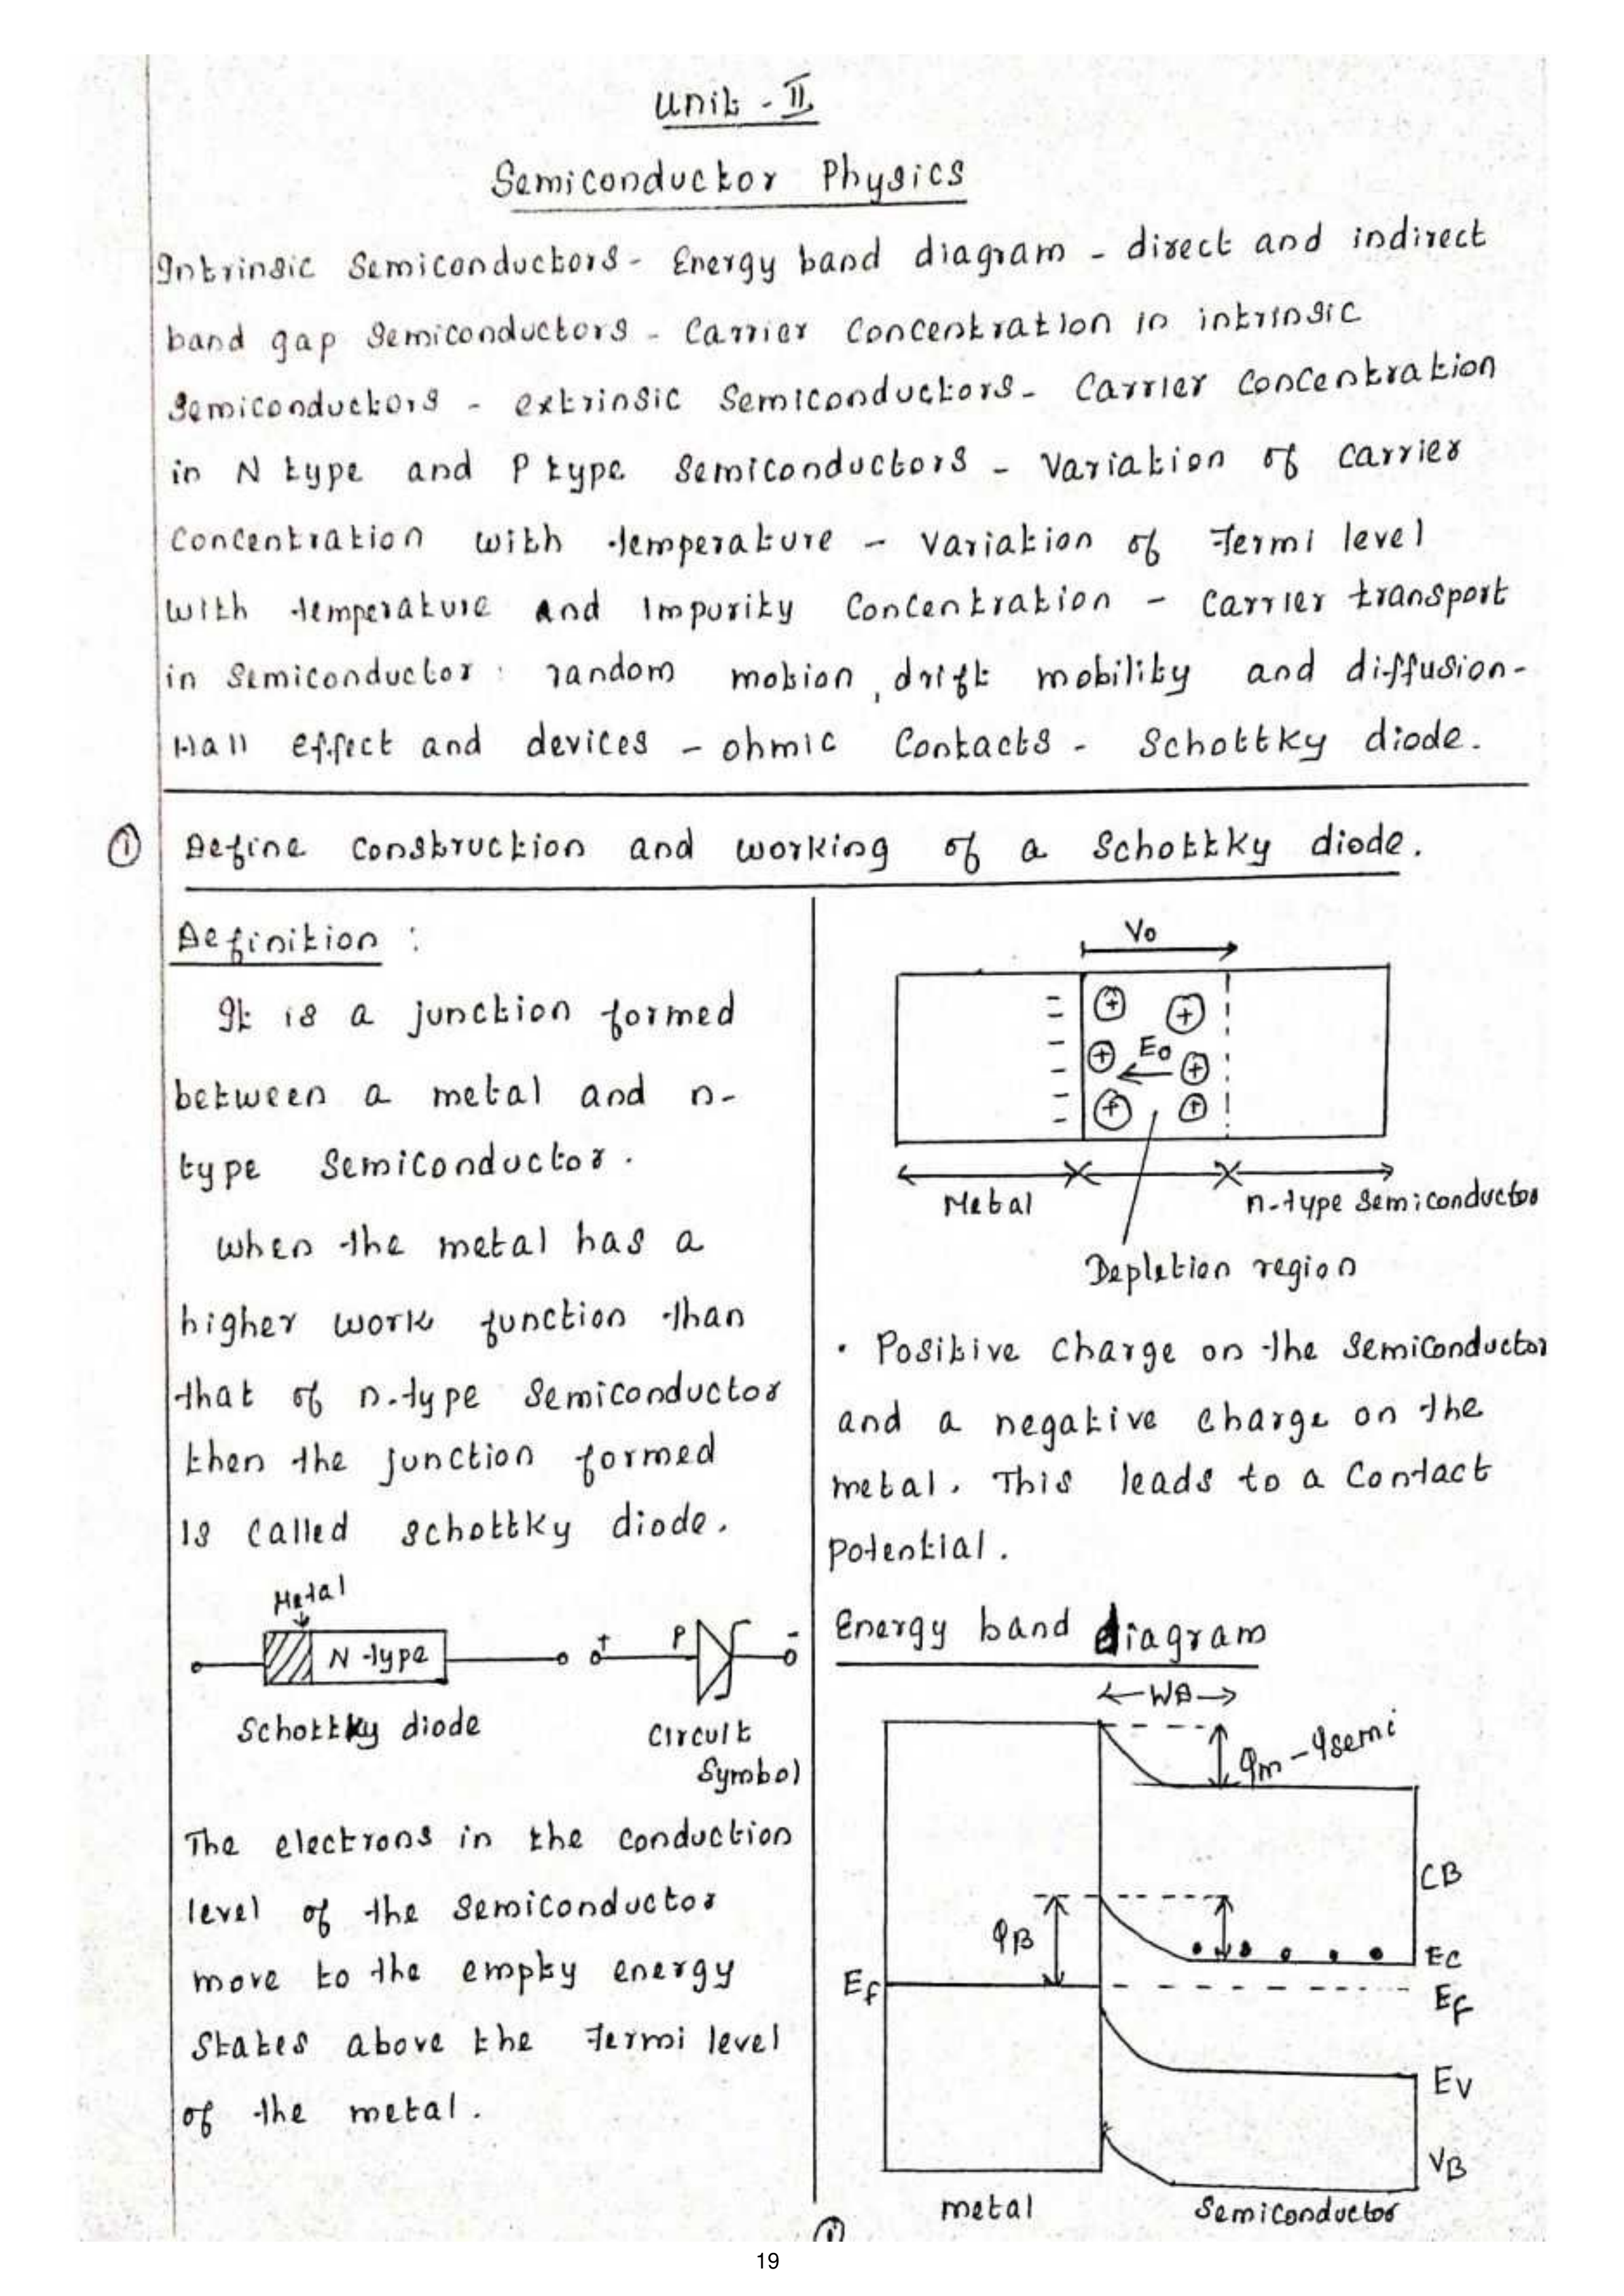 Unit - II
Semiconductor Physics
Intrinsic Semiconductors - Energy band diagram - direct and indirect
band gap Semiconductors - Carrier Concentration in intrinsic
Semiconductors - extrinsic Semiconductors - Carrier Concentration
in N type and P type Semiconductors - Variation of Carrier
Concentration with temperature - Variation of Fermi level
with temperature and Impurity Concentration - Carrier transport
in Semiconductor : random motion, drift mobility and diffusion-
Hall effect and devices - ohmic Contacts - Schottky diode.
① Define construction and working of a Schottky diode.
Definition :
It is a junction formed
between a metal and n-
type Semiconductor.
When the metal has a
higher work function than
that of n-type Semiconductor
then the junction formed
is called schottky diode.
Metal
N-type
+ P -
Schottky diode
Circuit
Symbol
The electrons in the conduction
level of the Semiconductor
move to the empty energy
States above the Fermi level
of the metal.
Vo
Eo
Metal
n-type Semiconductor
Depletion region
• Positive Charge on the Semiconductor
and a negative charge on the
metal. This leads to a Contact
Potential.
Energy band diagram
WD
φm - φsemi
CB
φB
EC
Ef
Ef
EV
VB
metal
Semiconductor
①
19